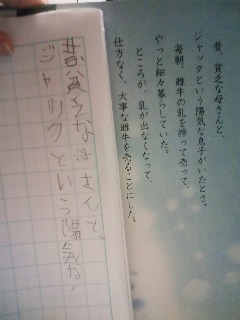 昔、貧乏な母さんと、
ジャックという陽気な息子がいたとさ。
毎朝、雌牛の乳を搾って売って、
やっと細々暮らしていた。
ところが、乳が出なくなって、
仕方なく、大事な雌牛を売ることにした。
昔貧乏な母さんと、
ジャックという陽気な